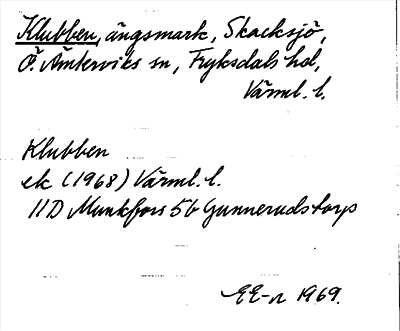 Klubben, ängsmark, Skacksjö,
Ö. Ämterviks sn, Fryksdals hd,
Värml. l.
Klubben
ek (1968) Värml. l.
11D Munkfors 5b Gunnerudstorp
EE-n 1969.